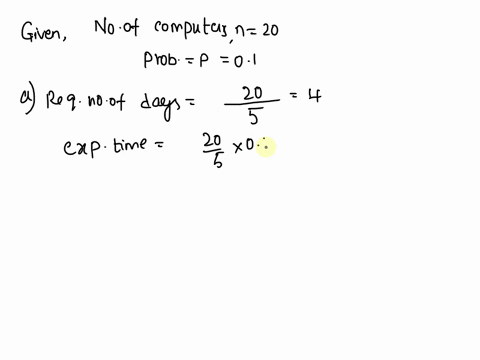 Given, No. of computers, n = 20
Prob. = P = 0.1
a) Req. no. of days = 20/5 = 4
exp. time = 20/5 × 0.